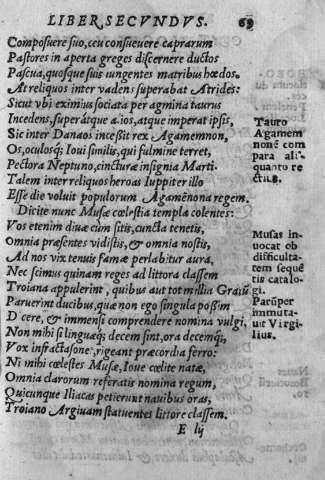 LIBER SECVNDVS. 69
Composuere suo, ceu consueuere caprarum
Pastores in aperta greges discernere ductos
Pascua, quosque suis iungentes matribus hœdos.
At reliquos inter vadens superabat Atrides:
Sicut vbi eximius sociata per agmina taurus
Incedens, superátque alios, atque imperat ipsis,
Sic inter Danaos incessit rex Agamemnon,
Os, oculosq; Ioui similis, qui fulmine terret,
Pectora Neptuno, cincturæ insignia Marti.
Talem inter reliquos heroas Iuppiter illo
Esse die voluit populorum Agamēnona regem.
Dicite nunc Musæ cœlestia templa colentes:
Vos etenim diuæ cùm sitis, cuncta tenetis,
Omnia præsentes vidistis, & omnia nostis,
Ad nos vix tenuis famæ perlabitur aura,
Nec scimus quinam reges ad littora classem
Troiana appulerint, quibus aut tot millia Graiũ
Paruerint ducibus, quæ non ego singula possim
D cere, & immensi comprendere nomina vulgi,
Non mihi si linguæq; decem sint, ora decemq;,
Vox infractasone, rigeant præcordia ferro:
Ni mihi cœlestes Musæ, Ioue cœlite natæ,
Omnia clarorum referatis nomina regum,
Quicunque Iliacas petierunt nauibus oras,
Troiano Argiuam statuentes littore classem.
E iij
Tauro
Agamem
nonē com
para ali‑
quanto re
ctiùs.
Musas in
uocat ob
difficulta‑
tem seque
tis catalo‑
gi.
Parūper
immuta‑
uit Virgi‑
lius.